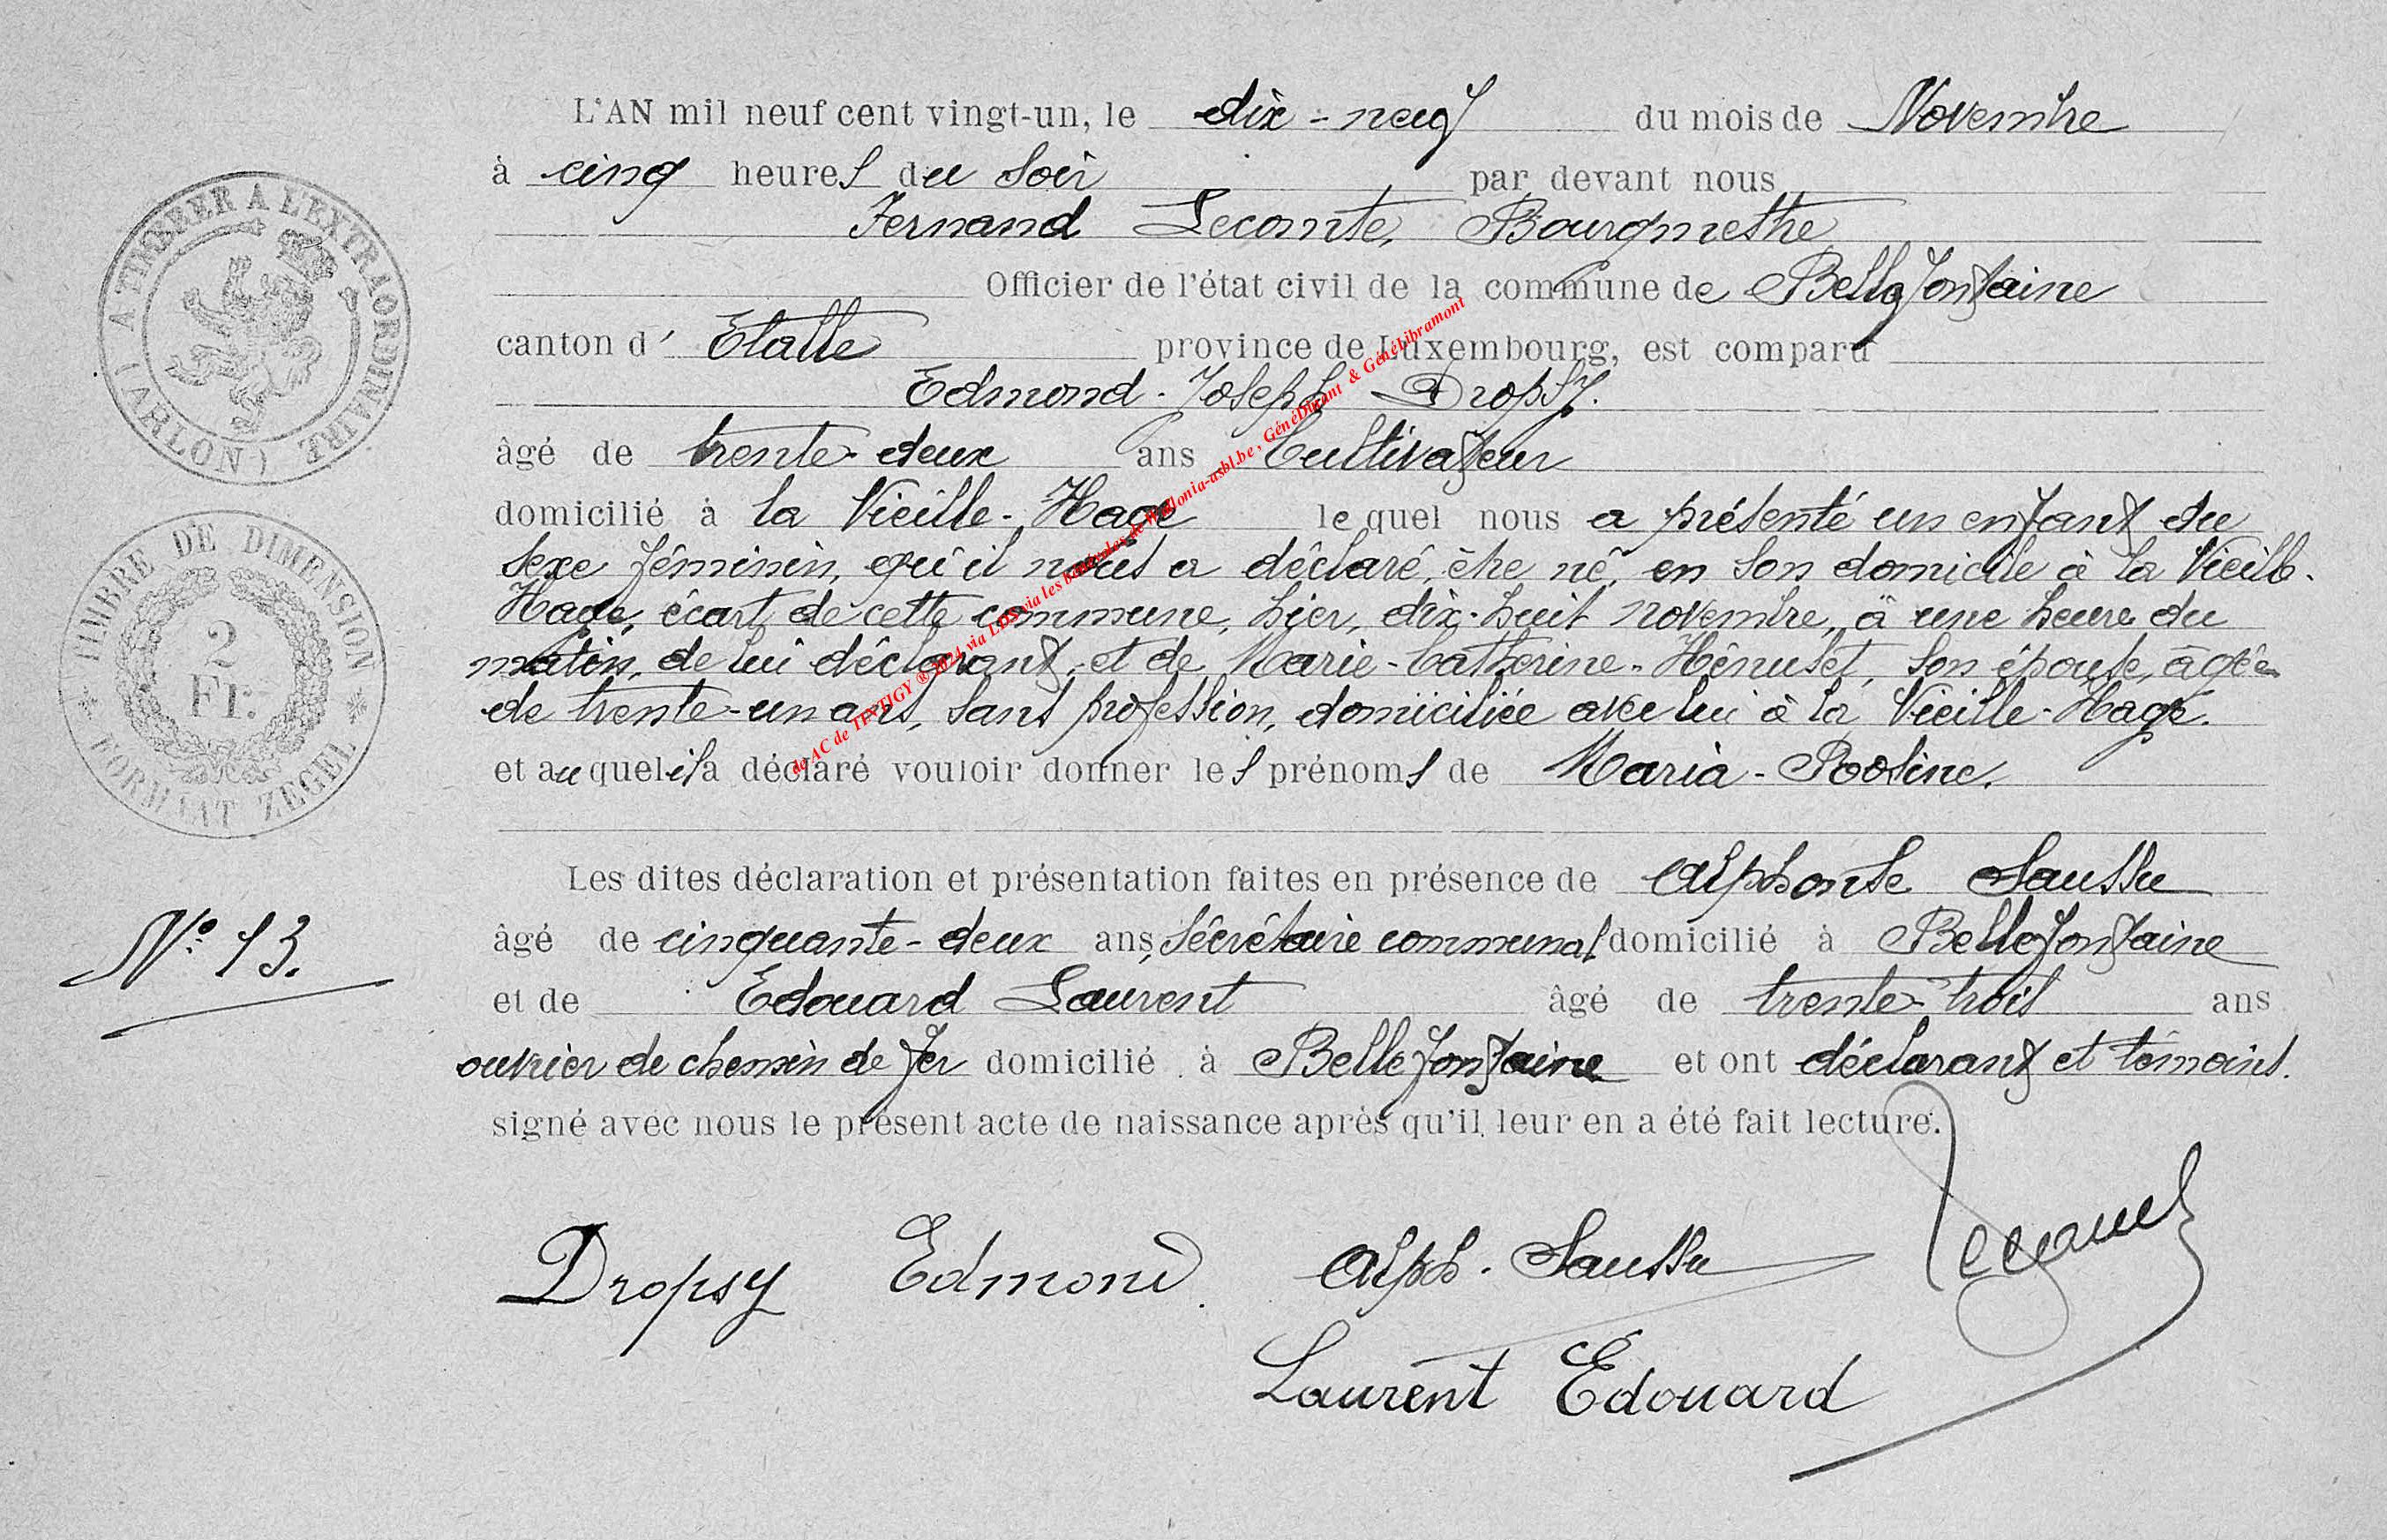 L'AN mil neuf cent vingt-un, le dix-neuf du mois de Novembre
à cinq heures du soir par devant nous
Fernand Lecomte, Bourgmestre
Officier de l'état civil de la commune de Bellefontaine
canton d'Etalle province de Luxembourg, est comparu
Edmond-Joseph Dropsy.
âgé de trente-deux ans Cultivateur
domicilié à la Vieille-Hage lequel nous a présenté un enfant du
sexe féminin, qu'il nous a déclaré, être né, en son domicile à la Vieille-
Hage, écart de cette commune, hier, dix-huit novembre, à une heure du
matin, de lui déclarant, et de Marie-Catherine-Hénuset, son épouse, âgée
de trente-un ans, sans profession, domiciliée avec lui à la Vieille-Hage.
et auquel il a déclaré vouloir donner les prénoms de Maria-Rosine.
Les dites déclaration et présentation faites en présence de Alphonse Saussu
âgé de cinquante-deux ans, Sécrétaire communal domicilié à Bellefontaine
et de Edouard Laurent âgé de trente-trois ans
ouvrier de chemin de fer domicilié à Bellefontaine et ont déclarant et témoins.
signé avec nous le présent acte de naissance après qu'il leur en a été fait lecture.
Dropsy Edmond. Alph. Saussu
Laurent Edouard
A TIMBRER A L'EXTRAORDINAIRE (ARLON)
TIMBRE DE DIMENSION
2
Fr.
FORMAAT ZEGEL
N° 13.
de AC de TINTIGY ® 2024 via LDS via les bénévoles de Wallonia-asbl.be, GénéDinant & GénéLibramont